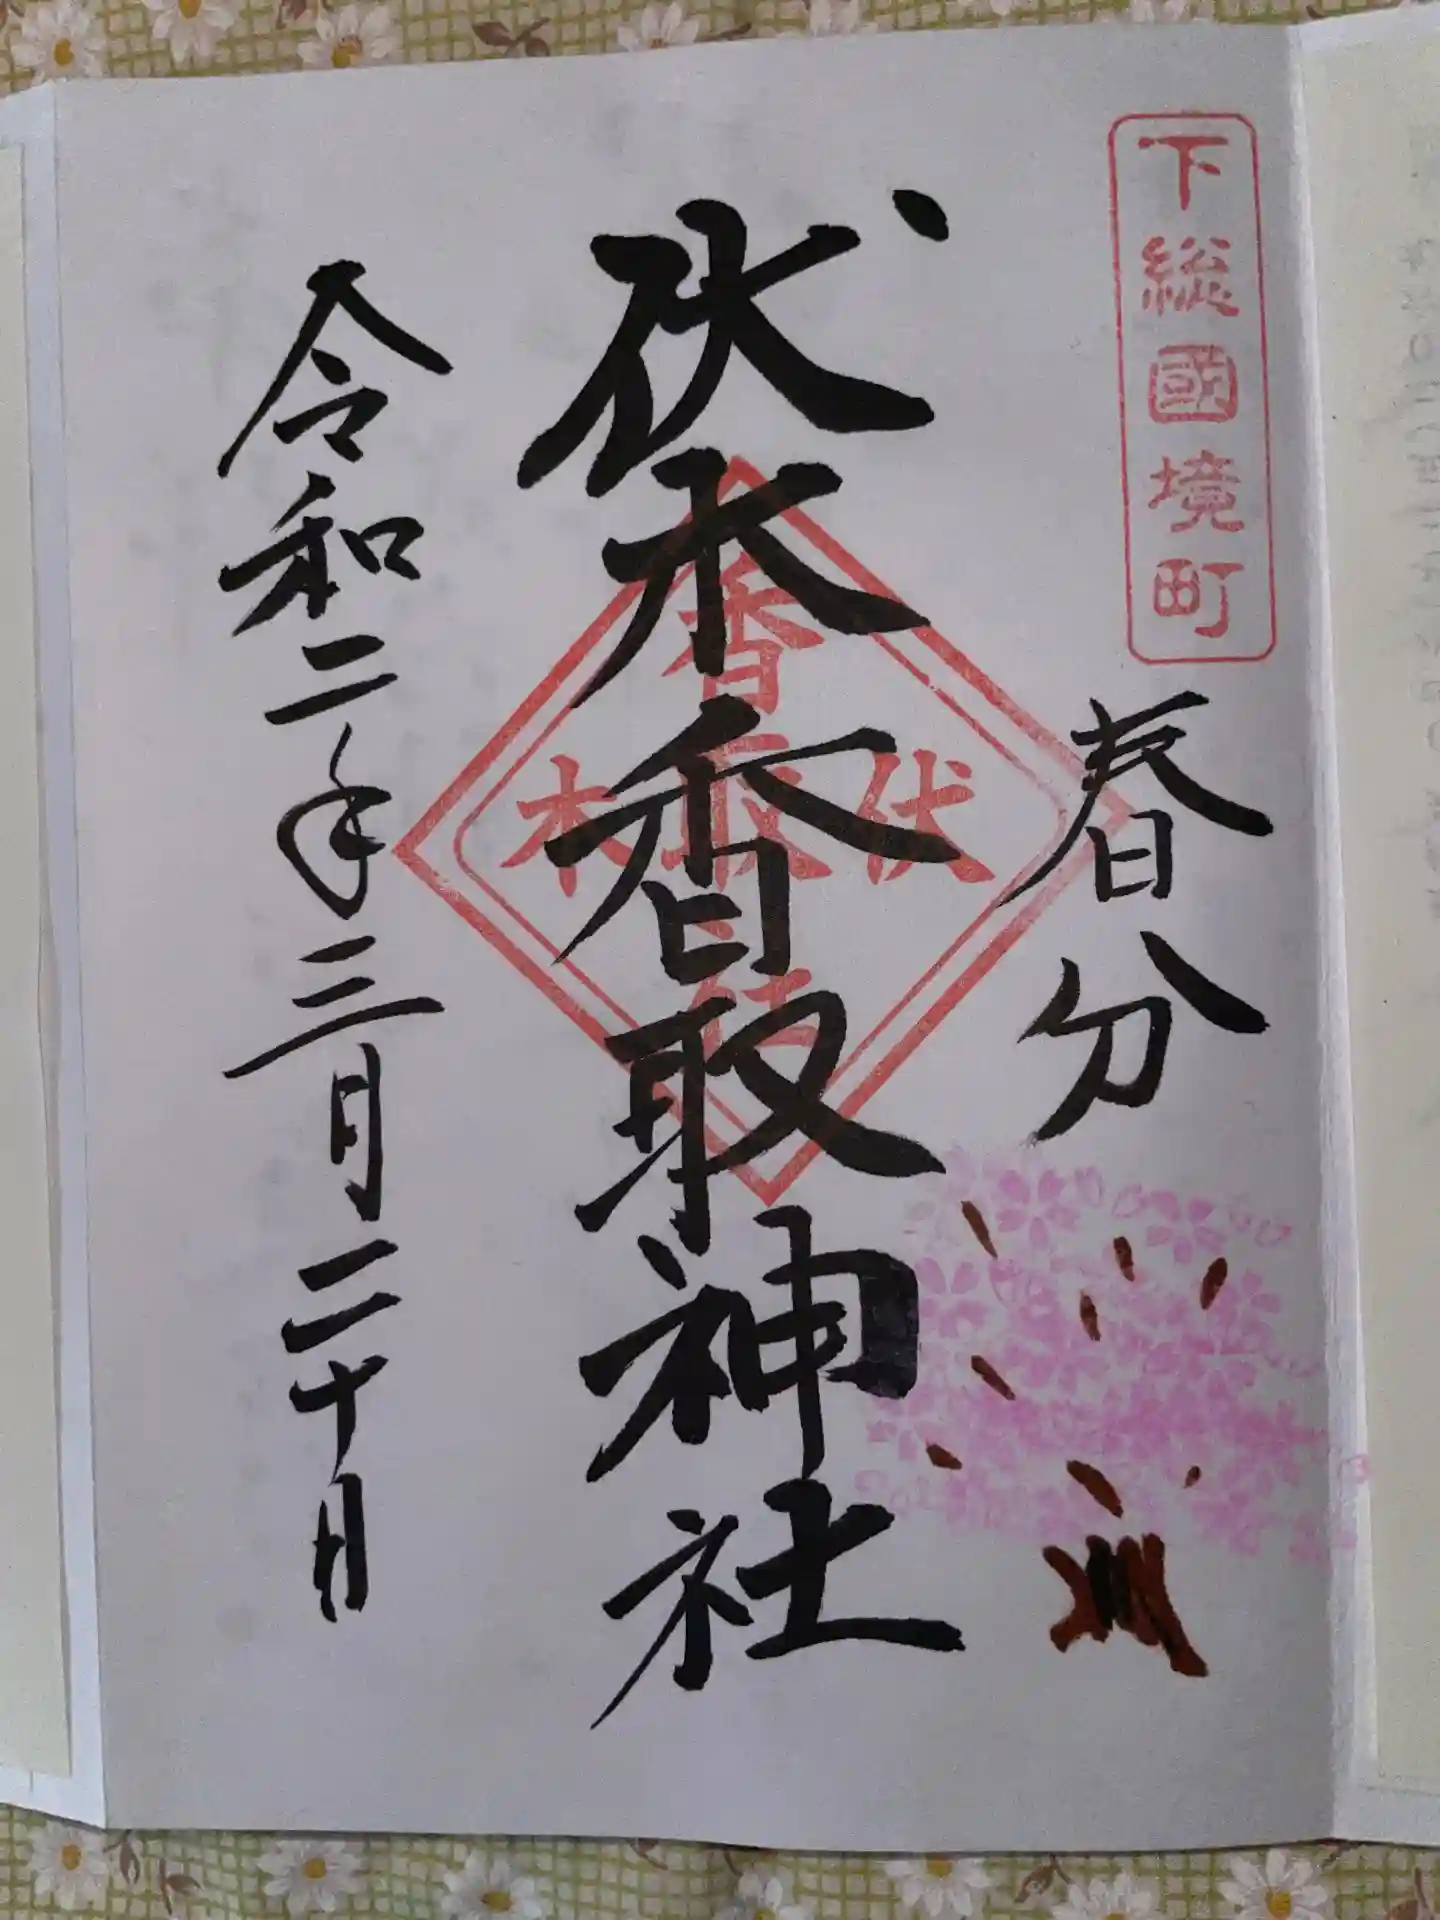 下総國境町
春分
伏木香取神社
香取
伏
木
令和二年三月二十日